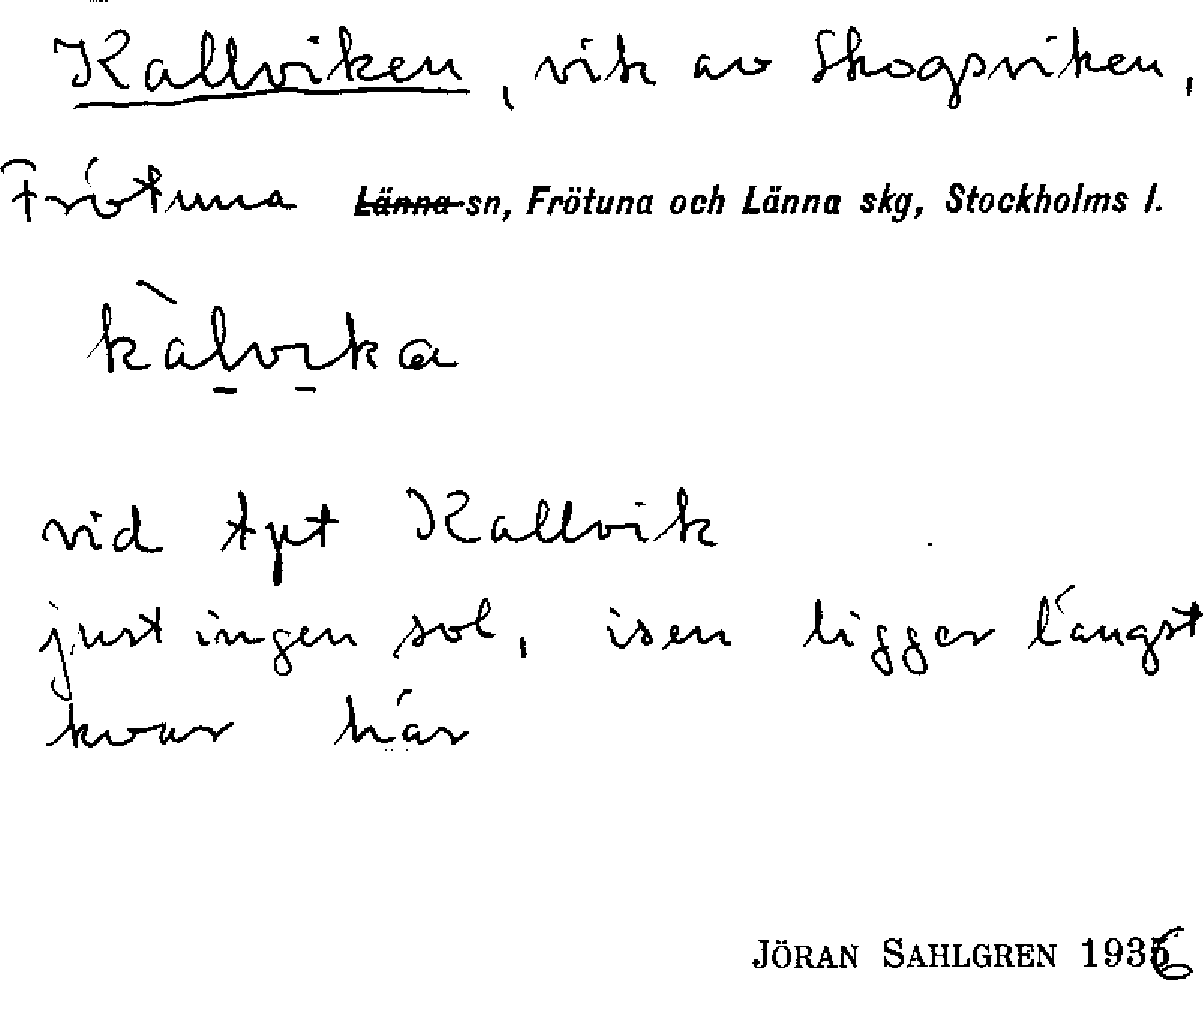 Kallviken, vik av Skogsviken,
Frötuna Länna sn, Frötuna och Länna skg, Stockholms l.
kàlvıka
vid tpt Kallvik
just ingen sol, isen ligger längst
kvar här
JÖRAN SAHLGREN 1936